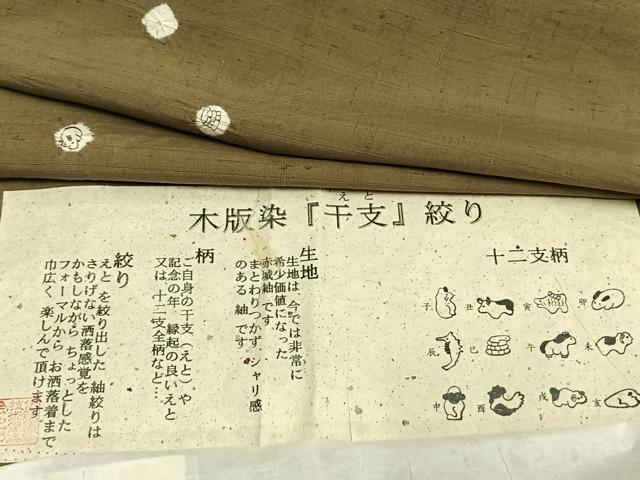 木版染『干支』絞り
えと
十二支柄
子 丑 寅 卯
辰 巳 午 未
申 酉 戌 亥
生地
生地は 今では 非常に
希少価値になった
赤城紬です
まとわりつかず シャリ感
のある 紬です
柄
ご自身の干支(えと)や
記念の年 縁起の良いえと
又は 十二支全柄など…
絞り
えとを絞り出した 紬絞りは
さりげない洒落感覚を
かもしながらちょっとした
フォーマルから お洒落着まで
巾広く 楽しんで頂けます